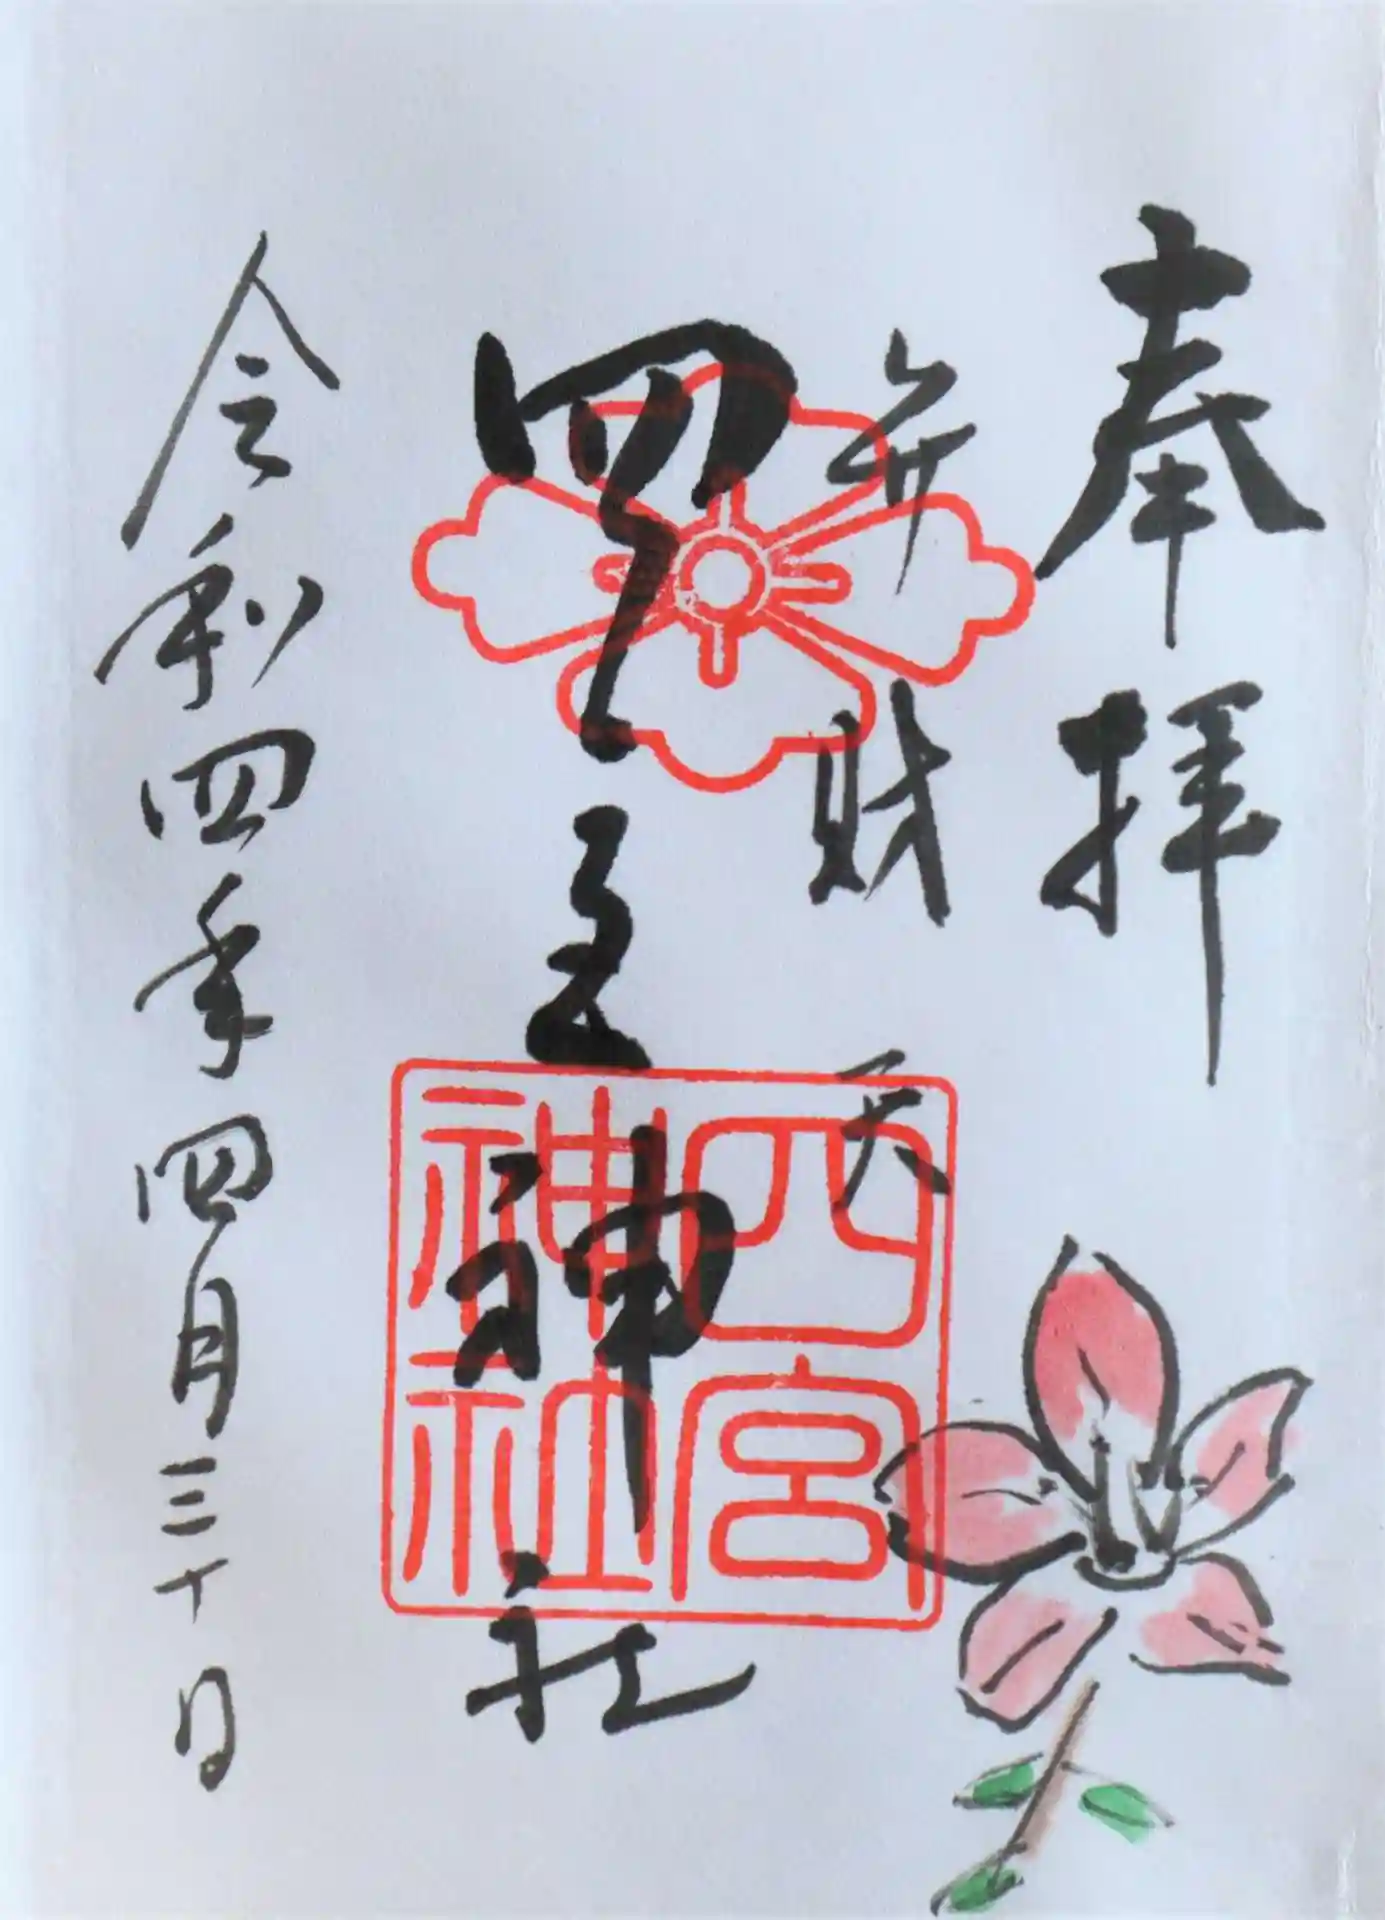 奉拝
弁財天
四宮神社
四宮神社
令和四年四月三十日